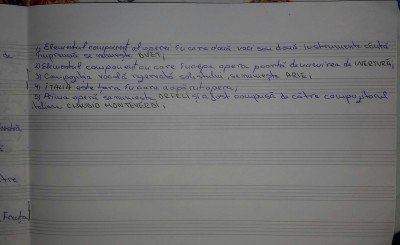 1) Elementul component al operei în care două voci sau două instrumente cântă
împreună se numește DUET;
2) Elementul component cu care începe opera poartă denumirea de UVERTURĂ;
3) Compoziția vocală rezervată solistului, se numește ARIE;
4) ITALIA este țara în care a apărut opera;
5) Prima operă se numește ORFEU și a fost compusă de către compozitorul
italian CLAUDIO MONTEVERDI;